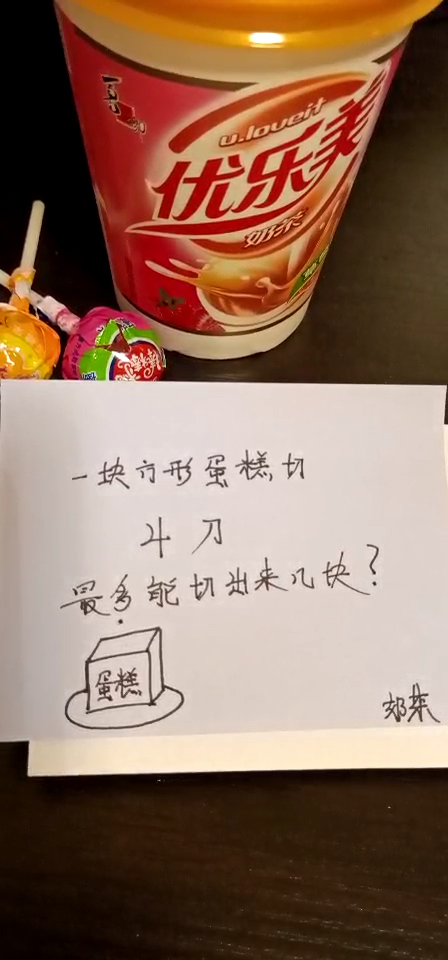 u.loveit
优乐美
奶茶
一块方形蛋糕,切
4刀
最多能切出来几块?
蛋糕